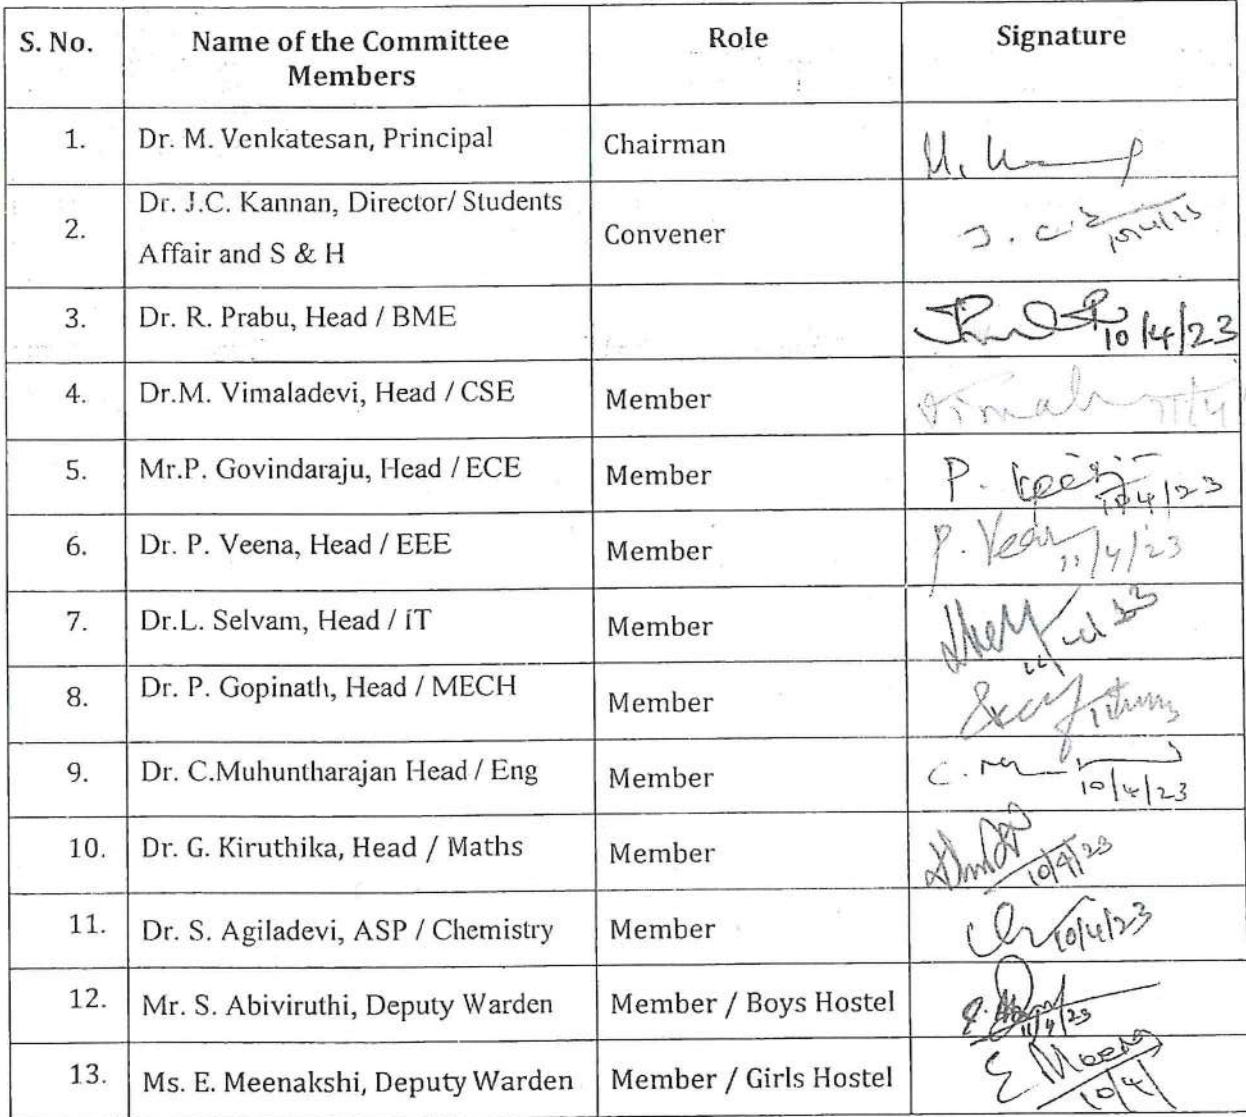 S. No. Name of the Committee Role Signature
Members
1. Dr. M. Venkatesan, Principal Chairman
Dr. J.C. Kannan, Director/ Students
2. Convener J. C. 10/4/23
Affair and S & H
3. Dr. R. Prabu, Head / BME 10/4/23
4. Dr.M. Vimaladevi, Head / CSE Member 11/4
5. Mr.P. Govindaraju, Head / ECE Member P. 10/4/23
6. Dr. P. Veena, Head / EEE Member P. Veena 11/4/23
7. Dr.L. Selvam, Head / IT Member
8. Dr. P. Gopinath, Head / MECH Member
9. Dr. C.Muhuntharajan Head / Eng Member C. 10/4/23
10. Dr. G. Kiruthika, Head / Maths Member 10/4/23
11. Dr. S. Agiladevi, ASP / Chemistry Member 10/4/23
12. Mr. S. Abiviruthi, Deputy Warden Member / Boys Hostel 11/4/23
13. Ms. E. Meenakshi, Deputy Warden Member / Girls Hostel E Meena 10/4